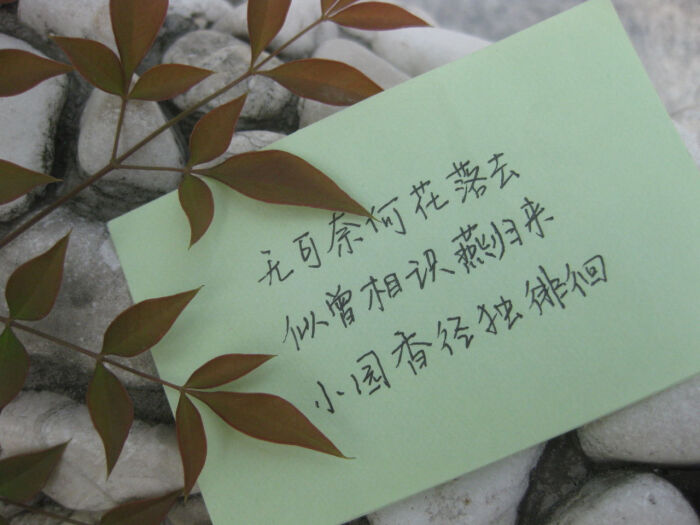 无可奈何花落去
似曾相识燕归来
小园香径独徘徊